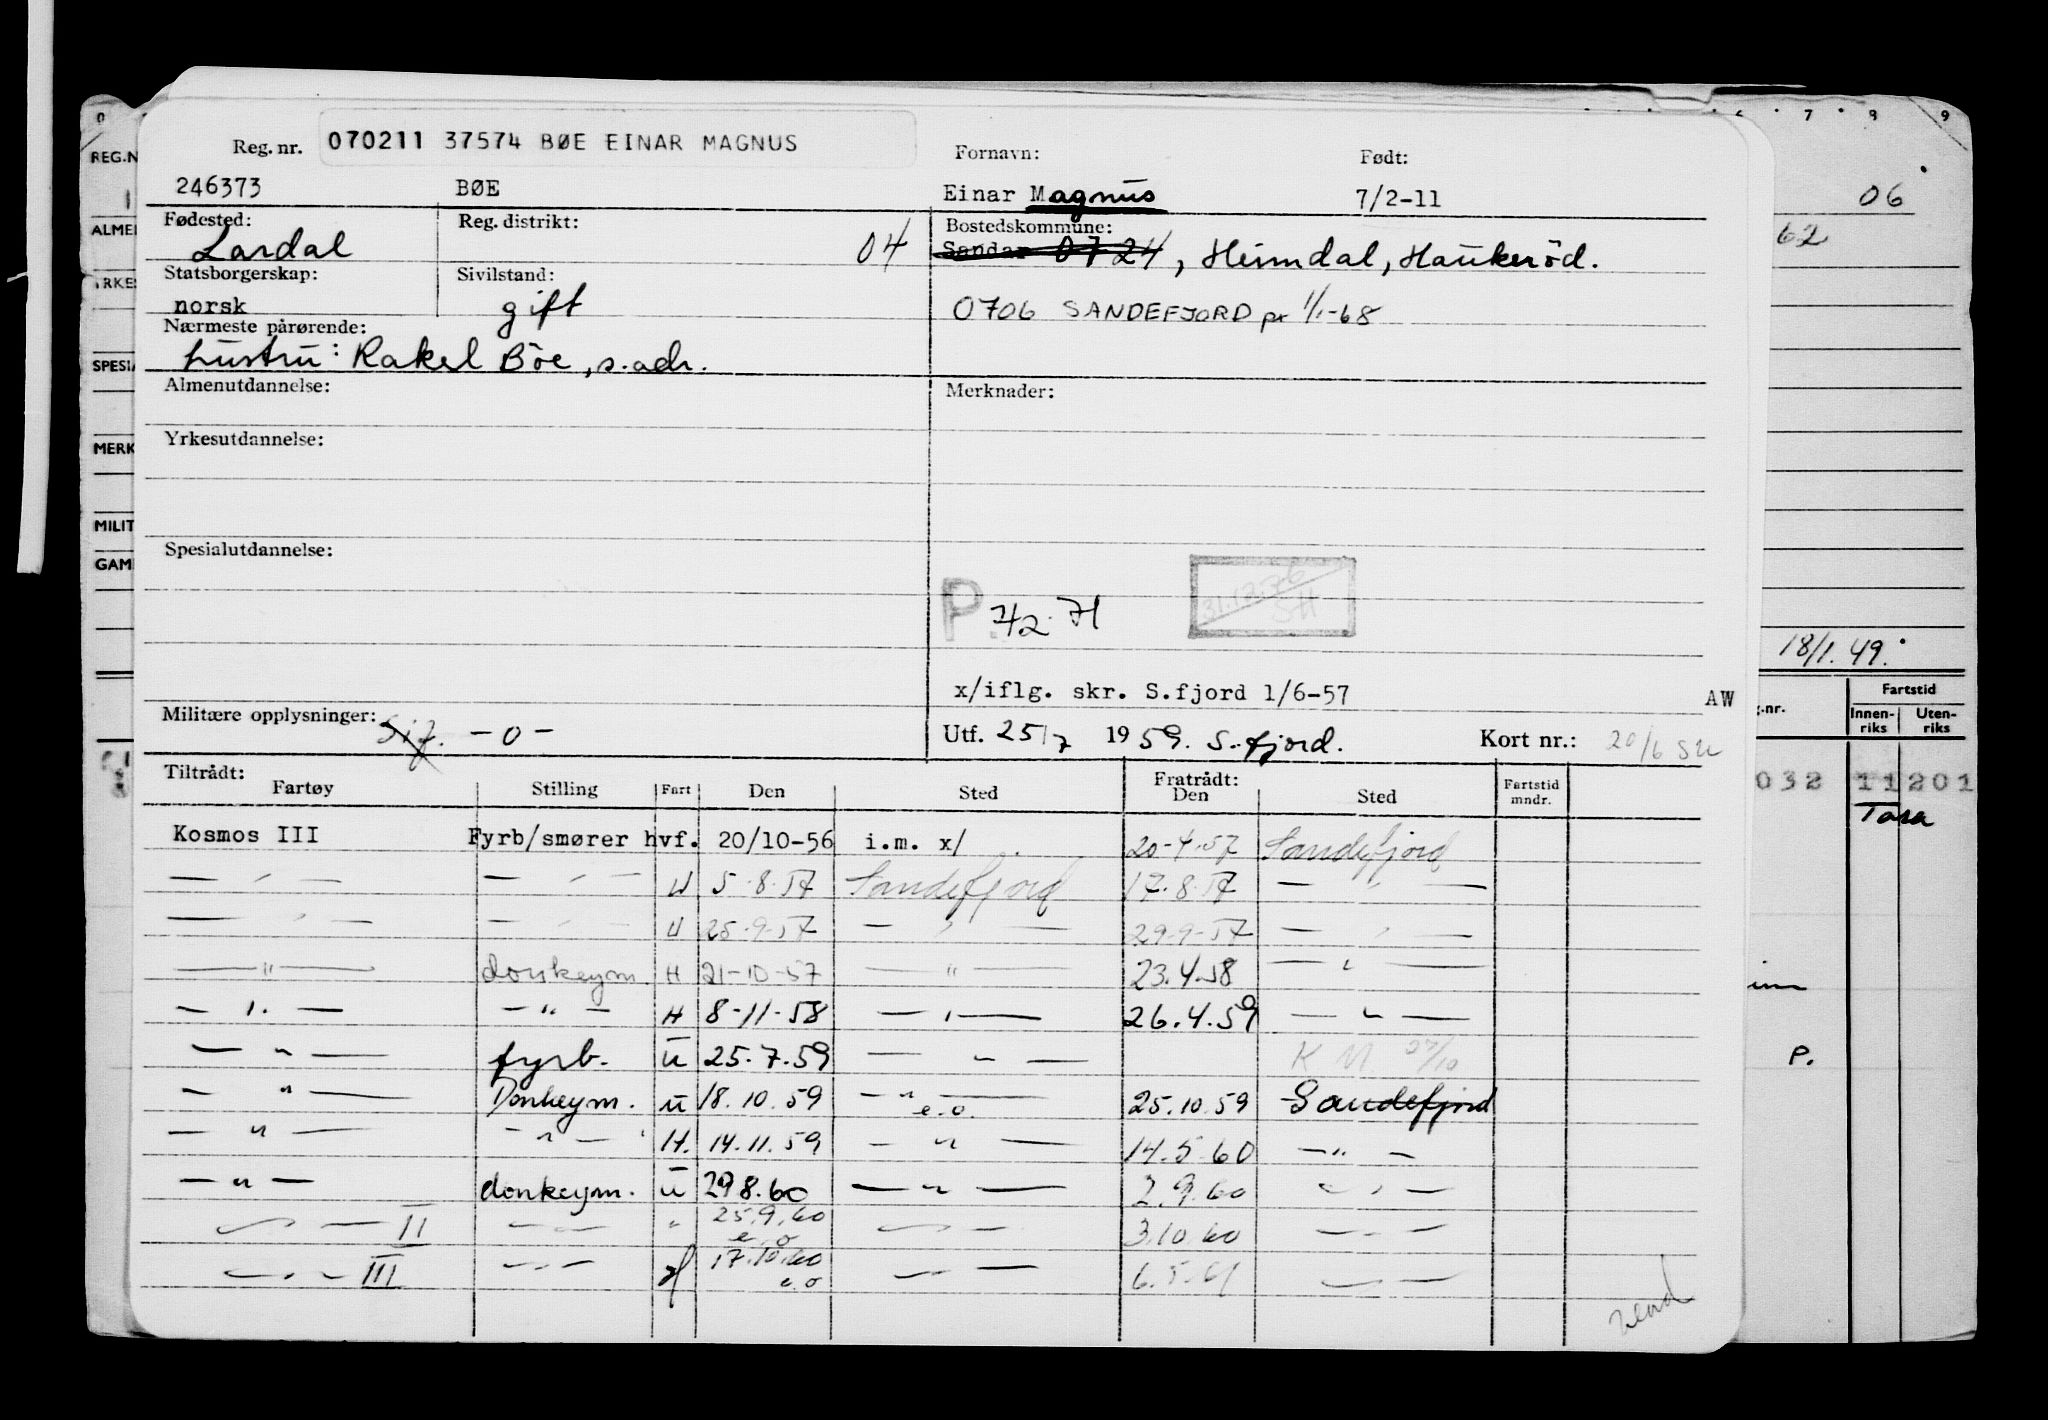 0 6 7 8 9
Reg. nr. 070211 37574 BØE EINAR MAGNUS Fornavn: Født:
REG.N
246373 BØE Einar Magnus 7/2-11 06
Fødested: Reg. distrikt: Bostedskommune:
ALME
Lardal 04 Sandar 0724, Heimdal, Haukerød. 62
Statsborgerskap: Sivilstand:
YRKES
norsk gift 0706 SANDEFJORD pr 1/1-68
Nærmeste pårørende:
hustru: Rakel Bøe, s. adr.
SPESIA
Almenutdannelse: Merknader:
Yrkesutdannelse:
MERK
MILIT
Spesialutdannelse:
GAM
P. 7/2-71 31.12.
18/1.49.
x/iflg. skr. S.fjord 1/6-57 AW
Militære opplysninger: Sjf. -0- Utf. 25/7 1959. S.fjord. Kort nr.: 20/6 SU
g.nr. Fartstid
Innen-riks Uten-riks
Tiltrådt: Fratrådt:
Fartøy Stilling Fart Den Sted Den Sted Fartstid mndr.
032 11 201
Kosmos III Fyrb/smører hvf. 20/10-56 i.m. x/ 20-4-57 Sandefjord
— " — — " — U 5.8.57 Sandefjord 17.8.57 — " —
— " — — " — U 25-9-57 — " — 29-9-57 — " —
— " — donkeym. H 21-10-57 — " — 23.4.58 — " —
— " — — " — H 8-11-58 — " — 26.4.59 — " —
— " — fyrb. U 25.7.59 — " — K M /10 P.
— " — Donkeym. U 18.10.59 — " — e.o. 25.10.59 Sandefjord
— " — — " — H. 14.11.59 — " — 14.5.60 — " —
— " — donkeym. U 29.8.60 — " — 2.9.60 — " —
— " — II — " — " 25.9.60 e.o — " — 3.10.60 — " —
— " — III — " — H 17.10.60 e.o — " — 6.5.61 — " —
vend